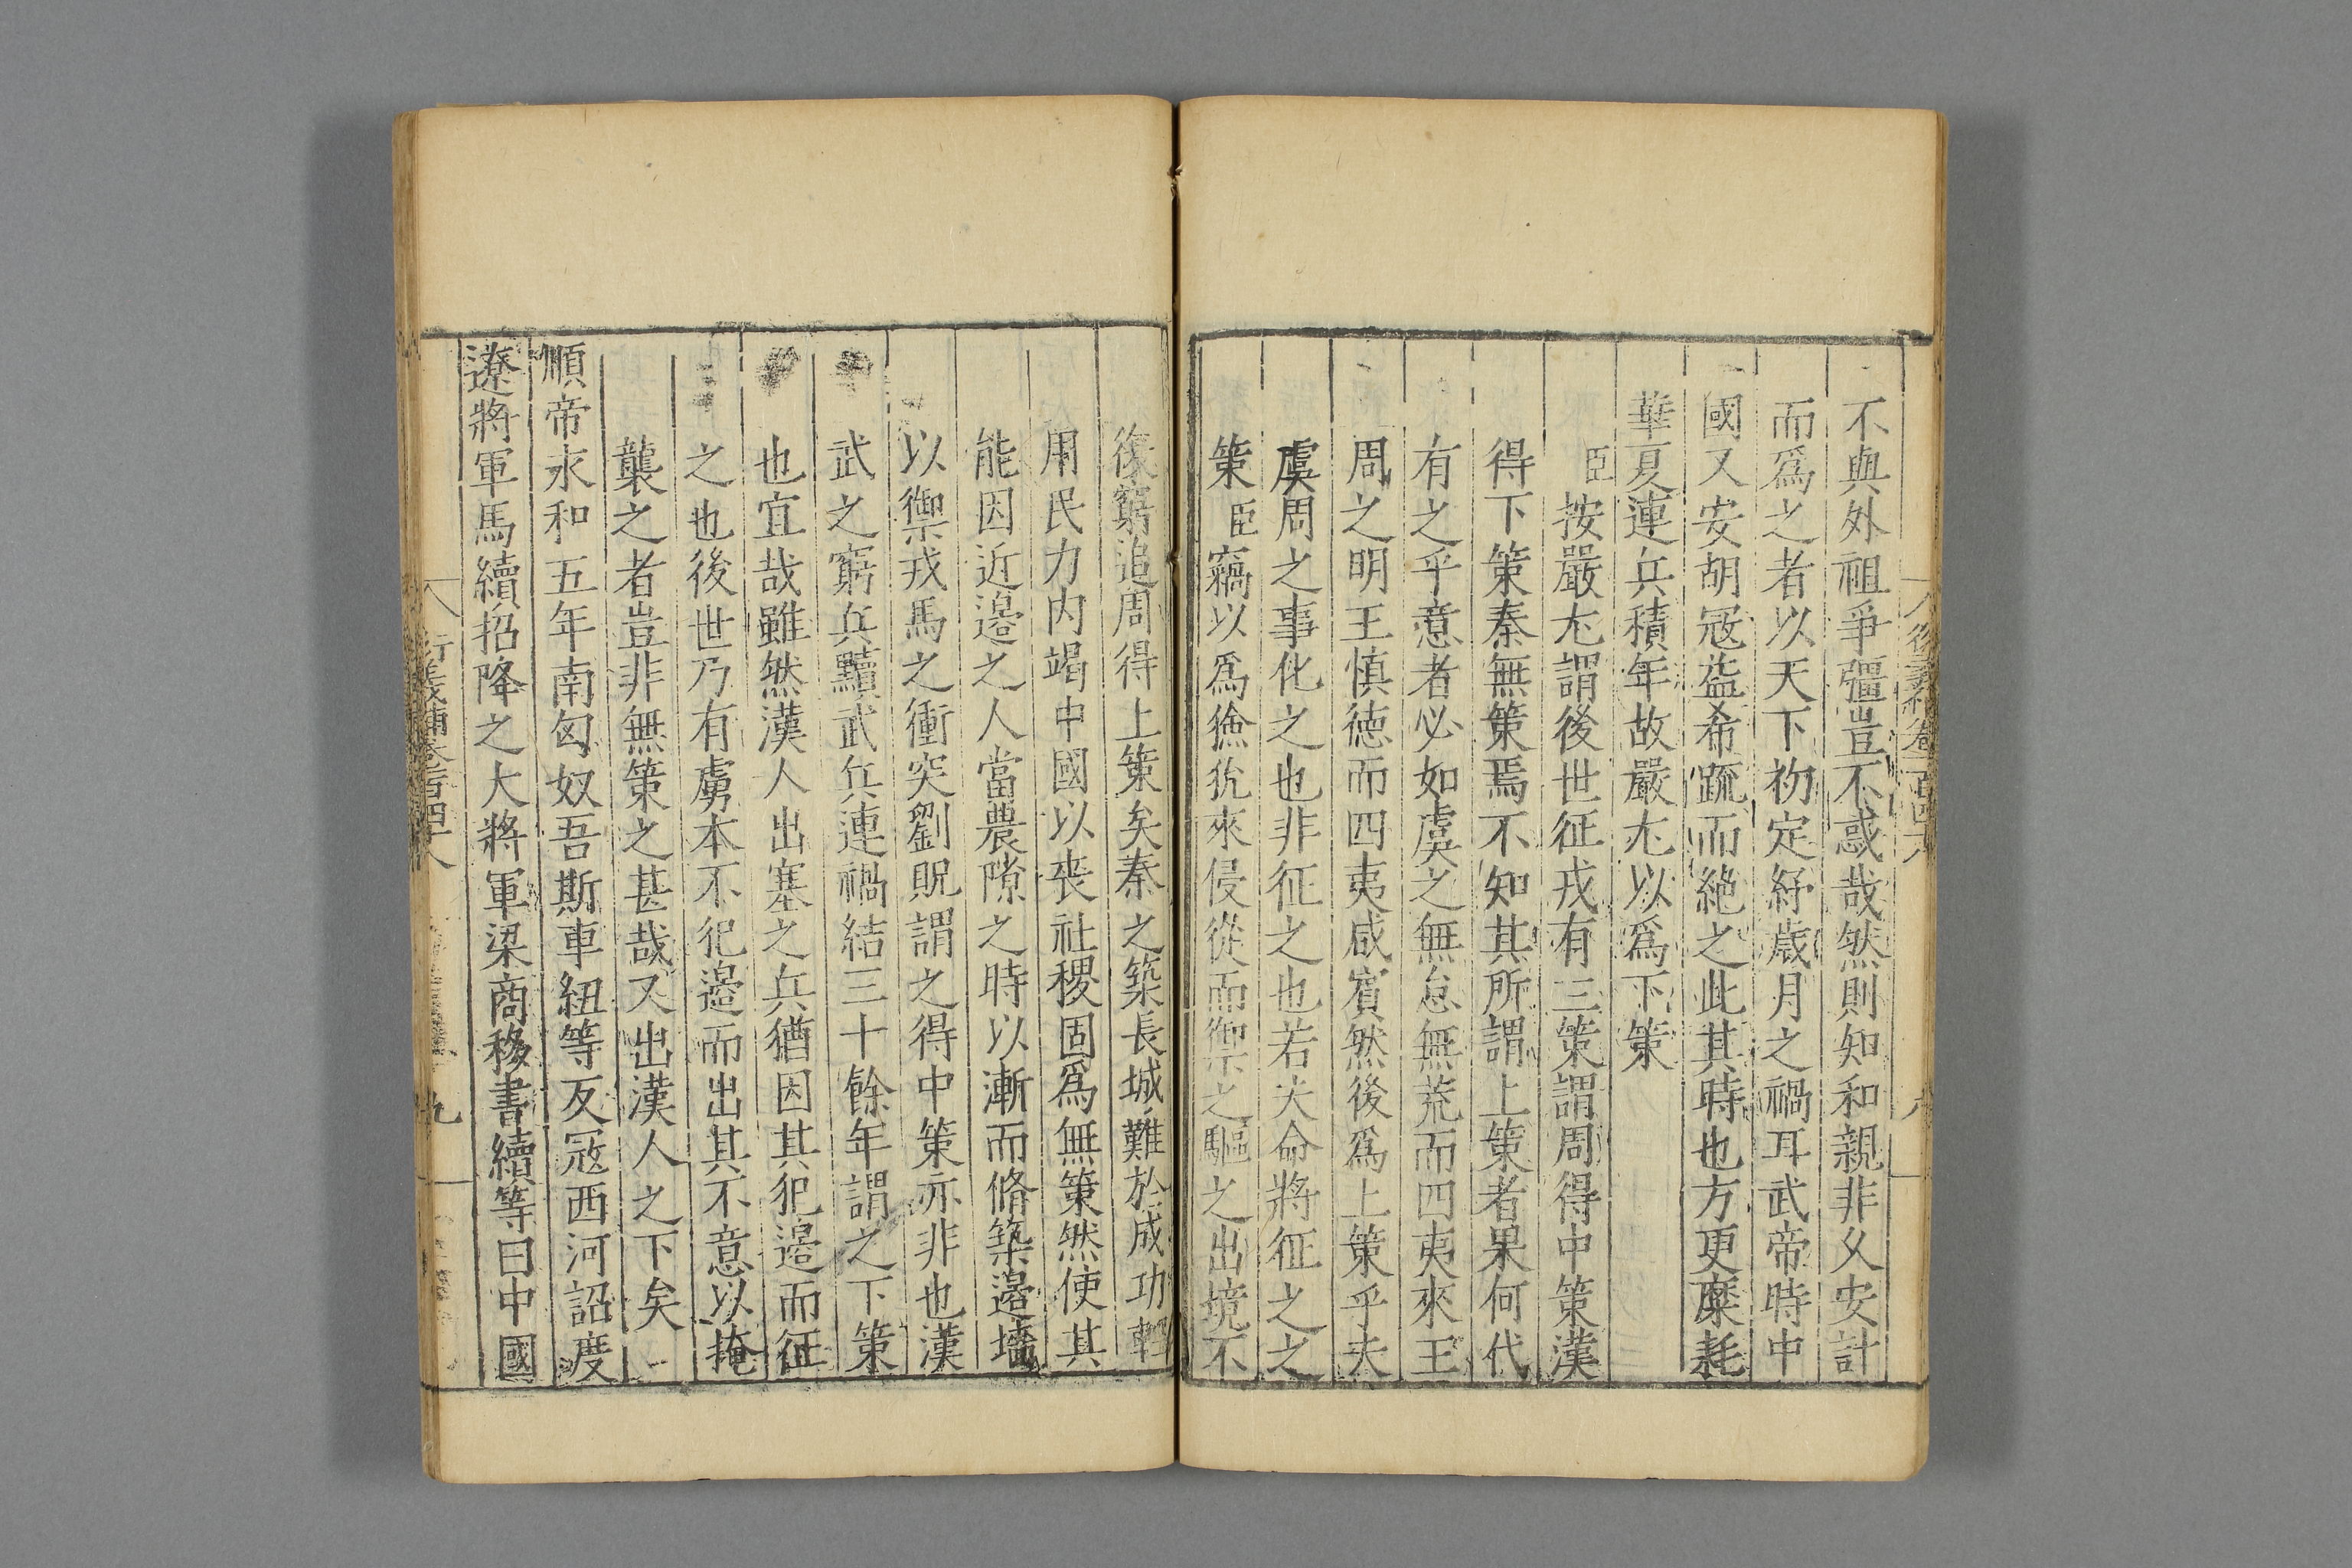 不與外祖爭彊豈不惑哉然則知和親非乆安計
而爲之者以天下初定紓歲月之禍耳武帝時中
國又安胡冦盗希䟽而絶之此其時也方更糜耗
華夏連兵積年故嚴尤以爲下策
臣按嚴尤謂後世征戎有三策謂周得中策漢
得下策秦無策焉不知其所謂上策者果何代
有之乎意者必如虞之無怠無荒而四夷來王
周之明王慎德而四夷咸賓然後爲上策乎夫
虞周之事化之也非征之也若夫命將征之之
策臣竊以爲獫狁來侵從而禦之驅之出境不
復窮追周得上策矣秦之築長城難於成功輕
用民力内竭中國以喪社稷固爲無策然使其
能因近邊之人當農隙之時以漸而脩築邊墻
以禦戎馬之衝突劉貺謂之得中策亦非也漢
武之窮兵黷武兵連禍結三十餘年謂之下策
也宜哉雖然漢人出塞之兵猶因其犯邊而征
之也後世乃有虜本不犯邊而出其不意以掩
襲之者豈非無策之甚哉又出漢人之下矣
順帝永和五年南匈奴吾斯車紐等反冦西河詔度
遼將軍馬續招降之大將軍梁商移書續等曰中國
衍義補卷一百四十八
九